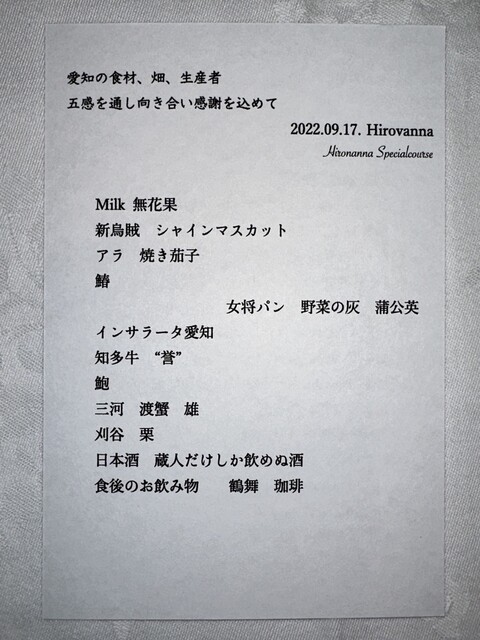 愛知の食材、畑、生産者
五感を通し向き合い感謝を込めて
2022.09.17. Hirovanna
Hironanna Specialcourse
Milk 無花果
新烏賊　シャインマスカット
アラ　焼き茄子
鰆
女将パン　野菜の灰　蒲公英
インサラータ愛知
知多牛　“誉”
鮑
三河　渡蟹　雄
刈谷　栗
日本酒　蔵人だけしか飲めぬ酒
食後のお飲み物　　鶴舞　珈琲